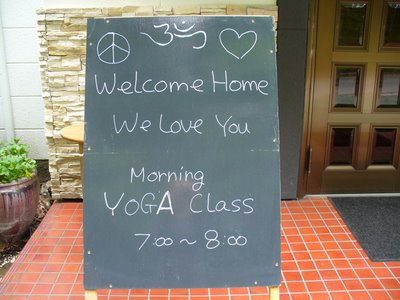 ॐ
Welcome Home
We Love You
Morning
YOGA Class
7:00 ~ 8:00